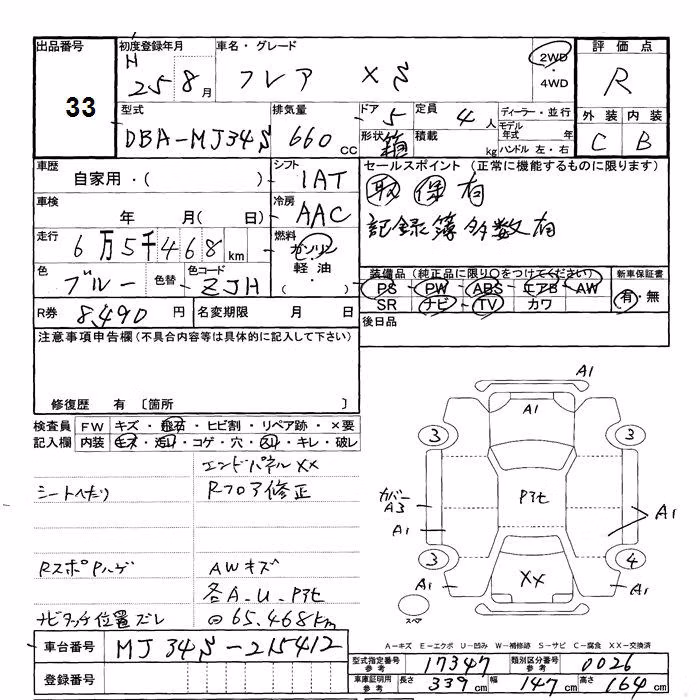 出品番号 33
初度登録年月 H 25 8月
車名・グレード フレア XS
2WD・4WD
評価点 R
型式 DBA-MJ34S
排気量 660cc
ドア 5
形状 箱
定員 4人
積載 kg
ディーラー・並行
モデル年式 年
ハンドル 左・右
外装 C
内装 B
車歴 自家用・( )
シフト IAT
セールスポイント (正常に機能するものに限ります)
取保有
記録簿多数有
車検 年 月( 日)
冷房 AAC
走行 6万5千468km
燃料 ガソリン 軽油・( )
色 ブルー
色替
色コード ZJH
装備品(純正品に限り○をつけてください)
PS PW ABS エアB AW
SR ナビ TV カワ
新車保証書 有・無
R券 8,490円
名変期限 月 日
後日品
注意事項申告欄(不具合内容等は具体的に記入して下さい)
修復歴 有 〔箇所 〕
検査員記入欄
FW キズ・飛石・ヒビ割・リペア跡・×要
内装 キズ・汚れ・コゲ・穴・スレ・キレ・破レ
エンドパネルXX
シートへたり Rフロア修正
RスポPハゲ AWキズ
各A.U.Pヨセ
ナビタッチ位置ズレ @65.468Km
A1
A1
3 3
カバーA3
Pヨセ
A1 A1
3 4
A1 XX A1
スペア
A-キズ E-エクボ U-凹み W-補修跡 S-サビ C-腐食 XX-交換済
車台番号 MJ34S-215412
登録番号
型式指定番号参考 17347
類別区分番号参考 0026
車庫証明用参考 長さ 339cm 幅 147cm 高さ 164cm